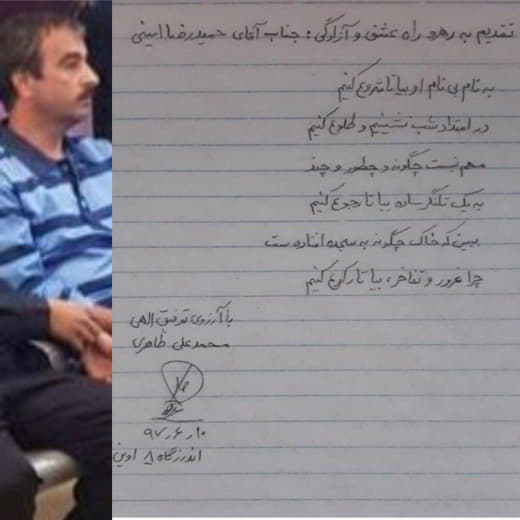 تقدیم به رهرو راه عشق و آزادگی : جناب آقای حمیدرضا امینی
به نام بی نام او بیا تا شروع کنیم
در امتداد شب نشینیم و طلوع کنیم
مهم نیست چگونه و چطور و چند
به یک تلنگر ساده بیا تا رجوع کنیم
ببین که خاک چگونه به سجده افتاده ست
چرا غرور و تفاخر، بیا تا رکوع کنیم
با آرزوی توفیق الهی
محمد علی طاهری
۹۷٫۶٫۱۰
اندرزگاه ۸ اوین